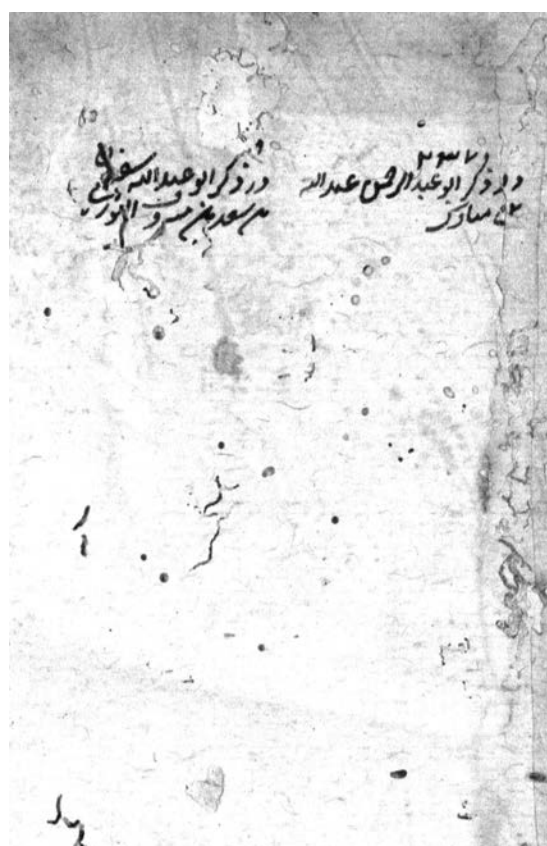 در ذکر ابو عبد الرحمن عبد الله
بن مبارک
در ذکر ابو عبد الله سفیان
بن سعد بن مسروق الثوری